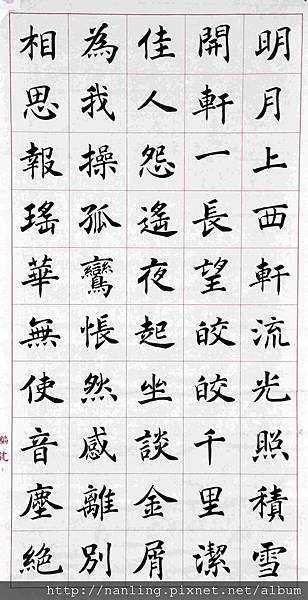 明月上西軒流光照積雪
開軒一長望皎皎千里潔
佳人怨遙夜起坐談金屑
為我操孤鸞悵然感離別
相思報瑤華無使音塵絕
編號：
http://nanling.pixnet.net/album